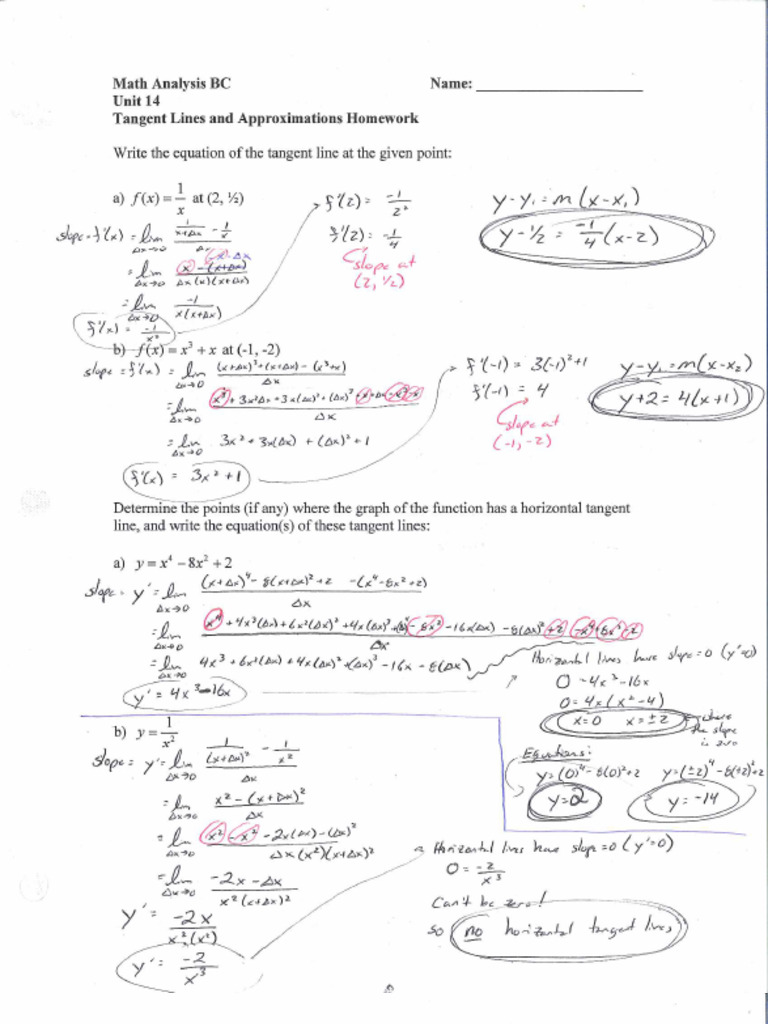 Math Analysis BC Name: ____________
Unit 14
Tangent Lines and Approximations Homework
Write the equation of the tangent line at the given point:
a) f(x) = 1/x at (2, ½)
slope = f'(x) = lim Δx→0 (1/(x+Δx) - 1/x)/Δx
= lim Δx→0 (x - (x+Δx))/(Δx(x)(x+Δx))
= lim Δx→0 -1/(x(x+Δx))
f'(x) = -1/x²
f'(2) = -1/2²
f'(2) = -1/4
slope at
(2, 1/2)
y - y₁ = m(x - x₁)
y - 1/2 = -1/4 (x - 2)
b) f(x) = x³ + x at (-1, -2)
slope = f'(x) = lim Δx→0 ((x+Δx)³ + (x+Δx) - (x³+x))/Δx
= lim Δx→0 (x³ + 3x²Δx + 3x(Δx)² + (Δx)³ + x + Δx - x³ - x)/Δx
= lim Δx→0 3x² + 3x(Δx) + (Δx)² + 1
f'(x) = 3x² + 1
f'(-1) = 3(-1)² + 1
f'(-1) = 4
slope at
(-1, -2)
y - y₁ = m(x - x₂)
y + 2 = 4(x + 1)
Determine the points (if any) where the graph of the function has a horizontal tangent
line, and write the equation(s) of these tangent lines:
a) y = x⁴ - 8x² + 2
slope = y' = lim Δx→0 ((x+Δx)⁴ - 8(x+Δx)² + 2 - (x⁴ - 8x² + 2))/Δx
= lim Δx→0 (x⁴ + 4x³(Δx) + 6x²(Δx)² + 4x(Δx)³ + (Δx)⁴ - 8x² - 16x(Δx) - 8(Δx)² + 2 - x⁴ + 8x² - 2)/Δx
= lim Δx→0 4x³ + 6x²(Δx) + 4x(Δx)² + (Δx)³ - 16x - 8(Δx)
y' = 4x³ - 16x
Horizontal lines have slope = 0 (y'=0)
0 = 4x³ - 16x
0 = 4x(x² - 4)
x = 0 x = ±2
where
the slope
is zero
Equations:
y = (0)⁴ - 8(0)² + 2 y = (±2)⁴ - 8(±2)² + 2
y = 2 y = -14
b) y = 1/x²
slope = y' = lim Δx→0 (1/(x+Δx)² - 1/x²)/Δx
= lim Δx→0 (x² - (x+Δx)²)/Δx
= lim Δx→0 (x² - x² - 2x(Δx) - (Δx)²)/(Δx(x²)(x+Δx)²)
= lim Δx→0 (-2x - Δx)/(x²(x+Δx)²)
y' = -2x/(x²(x²))
y' = -2/x³
Horizontal lines have slope = 0 (y'=0)
0 = -2/x³
Can't be zero!
so no horizontal tangent lines